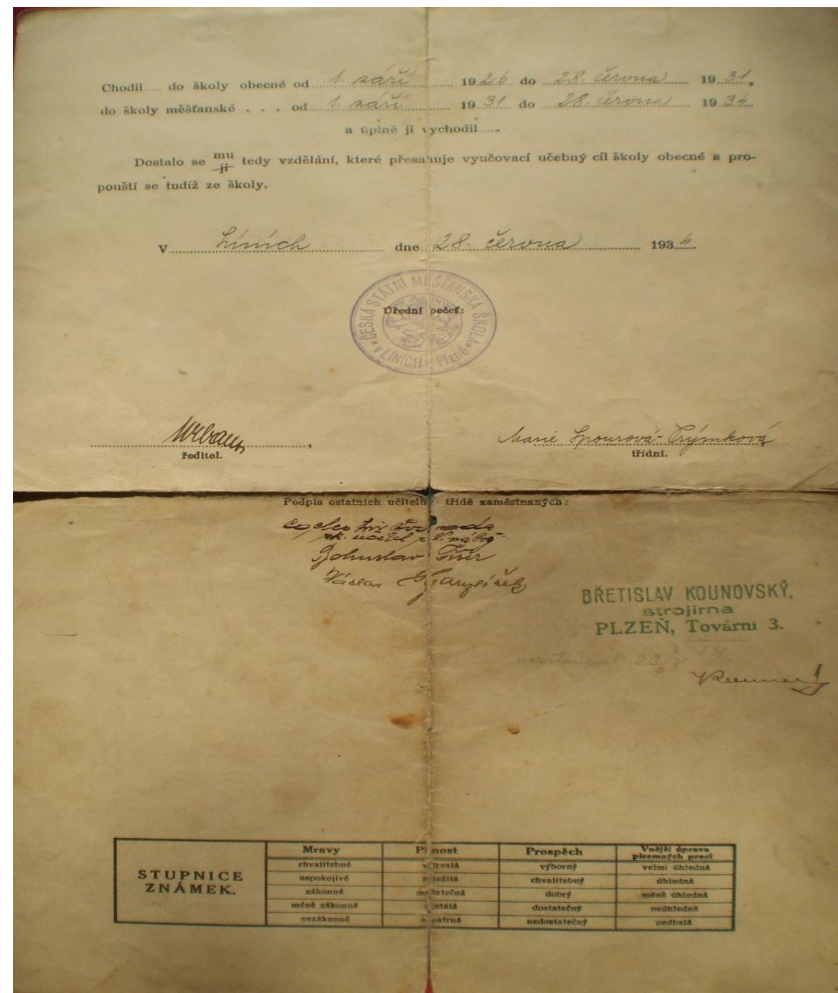 Chodil.... do školy obecné od 1. září 1926 do 28. června 1931,
do školy měšťanské . . . od 1. září 1931 do 28. června 1934
a úplně ji vychodil.....
Dostalo se mu
ji tedy vzdělání, které přesahuje vyučovací učebný cíl školy obecné a pro-
pouští se tudíž ze školy.
V Líních dne 28. června 1934.
ČESKÁ STÁTNÍ MĚŠŤANSKÁ ŠKOLA
Úřední pečeť:
v LÍNÍCH u Plzně
Urban,
Marie Spourová-Trýmková
ředitel.
třídní.
Podpis ostatních učitelů v třídě zaměstnaných:
učitel
Bohuslav Fišer
Václav
BŘETISLAV KOUNOVSKÝ,
strojírna
PLZEŇ, Tovární 3.
STUPNICE ZNÁMEK.
Mravy Pilnost Prospěch Vnější úprava písemných prací
chvalitebné vytrvalá výborný velmi úhledná
uspokojivé náležitá chvalitebný úhledná
zákonné dostatečná dobrý méně úhledná
méně zákonné nestálá dostatečný neúhledná
nezákonné nepatrná nedostatečný nedbalá